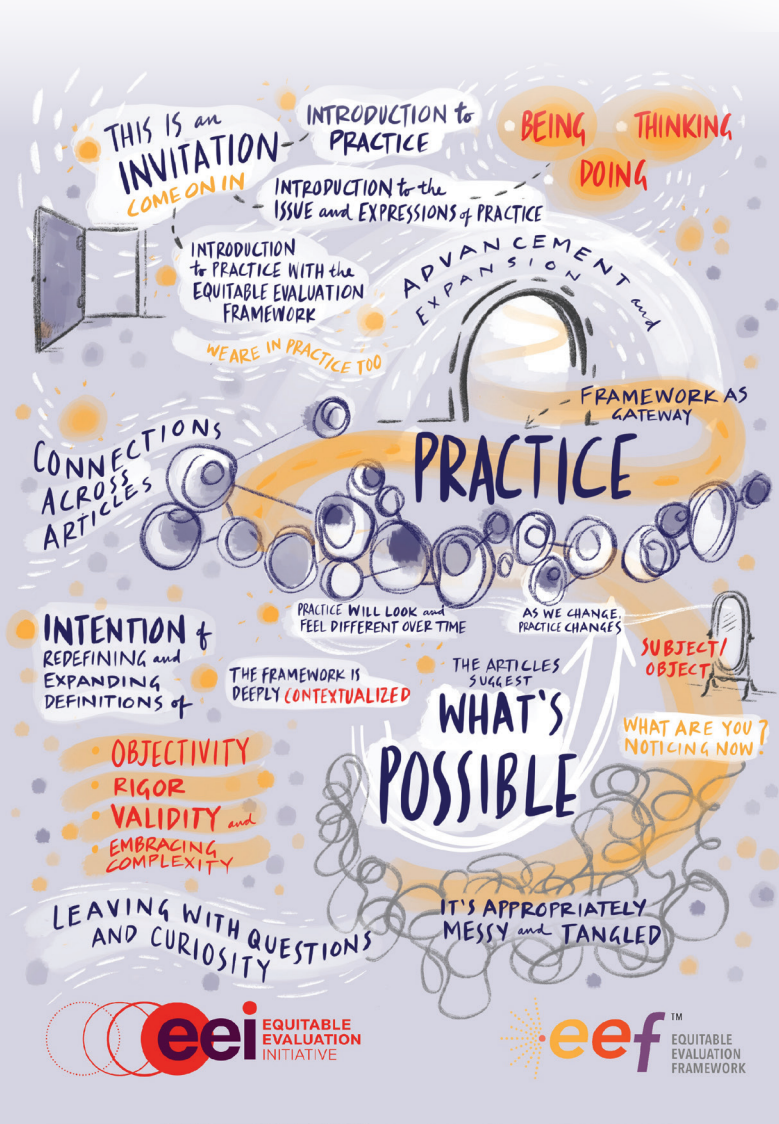 THIS IS an
INVITATION
COME ON IN
INTRODUCTION to
PRACTICE
BEING
THINKING
DOING
INTRODUCTION to the
ISSUE and EXPRESSIONS of PRACTICE
INTRODUCTION
to PRACTICE WITH the
EQUITABLE EVALUATION
FRAMEWORK
WE ARE IN PRACTICE TOO
ADVANCEMENT and
EXPANSION
FRAMEWORK AS
GATEWAY
PRACTICE
CONNECTIONS
ACROSS
ARTICLES
PRACTICE WILL LOOK and
FEEL DIFFERENT OVER TIME
AS WE CHANGE,
PRACTICE CHANGES
SUBJECT/
OBJECT
INTENTION of
REDEFINING and
EXPANDING
DEFINITIONS of
THE FRAMEWORK IS
DEEPLY CONTEXTUALIZED
THE ARTICLES
SUGGEST
WHAT'S
POSSIBLE
WHAT ARE YOU
NOTICING NOW?
OBJECTIVITY
RIGOR
VALIDITY and
EMBRACING
COMPLEXITY
LEAVING WITH QUESTIONS
AND CURIOSITY
IT'S APPROPRIATELY
MESSY and TANGLED
eei EQUITABLE
EVALUATION
INITIATIVE
eef TM
EQUITABLE
EVALUATION
FRAMEWORK